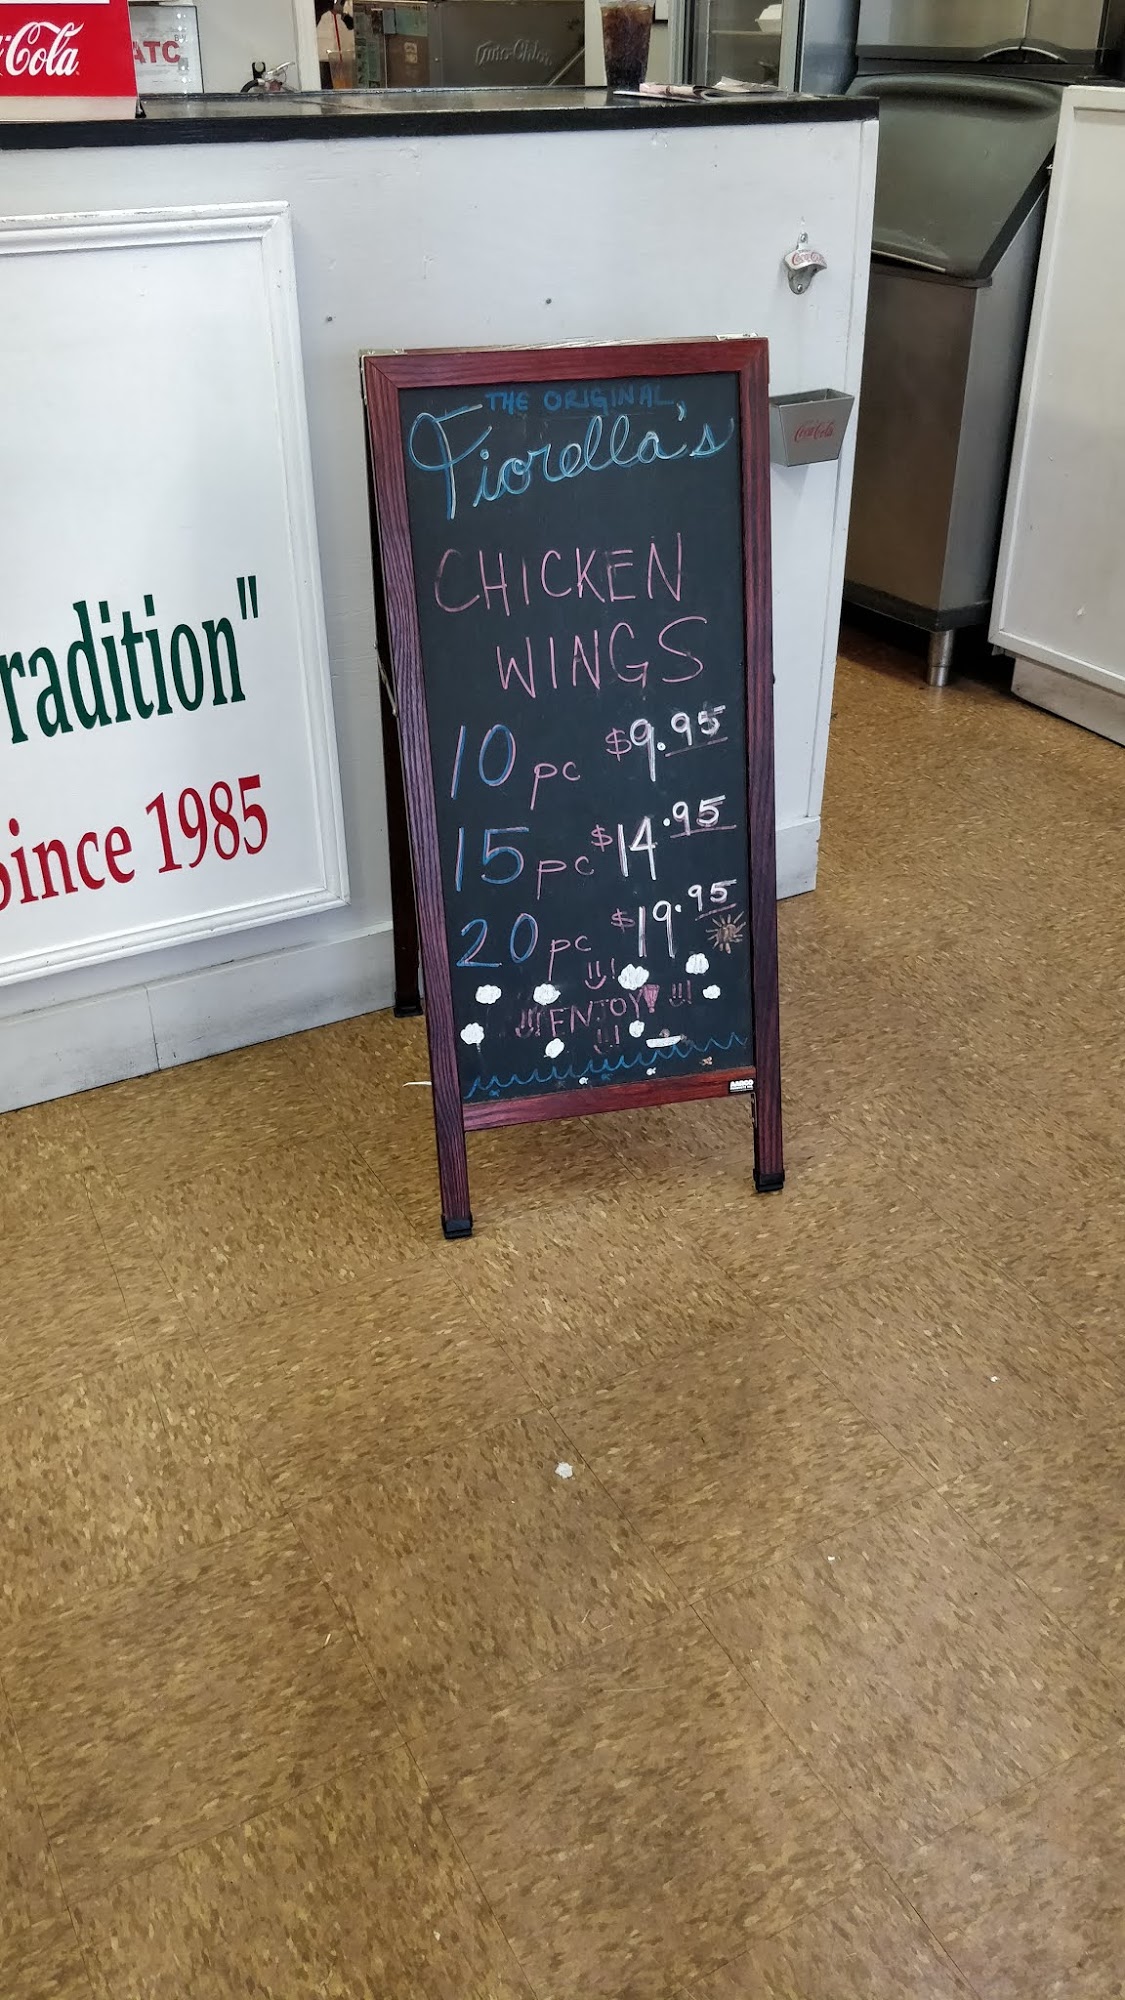 Cola
ATC
Auto-Chlor
Coca-Cola
Coca-Cola
radition"
Since 1985
THE ORIGINAL
Fiorella's
CHICKEN
WINGS
10 pc $9.95
15 pc $14.95
20 pc $19.95
ENJOY!
AARCO